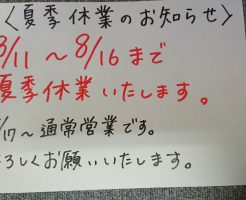 〈夏季休業のお知らせ〉
8/11 〜 8/16 まで
夏季休業いたします。
/17〜通常営業です。
ろしくお願いいたします。